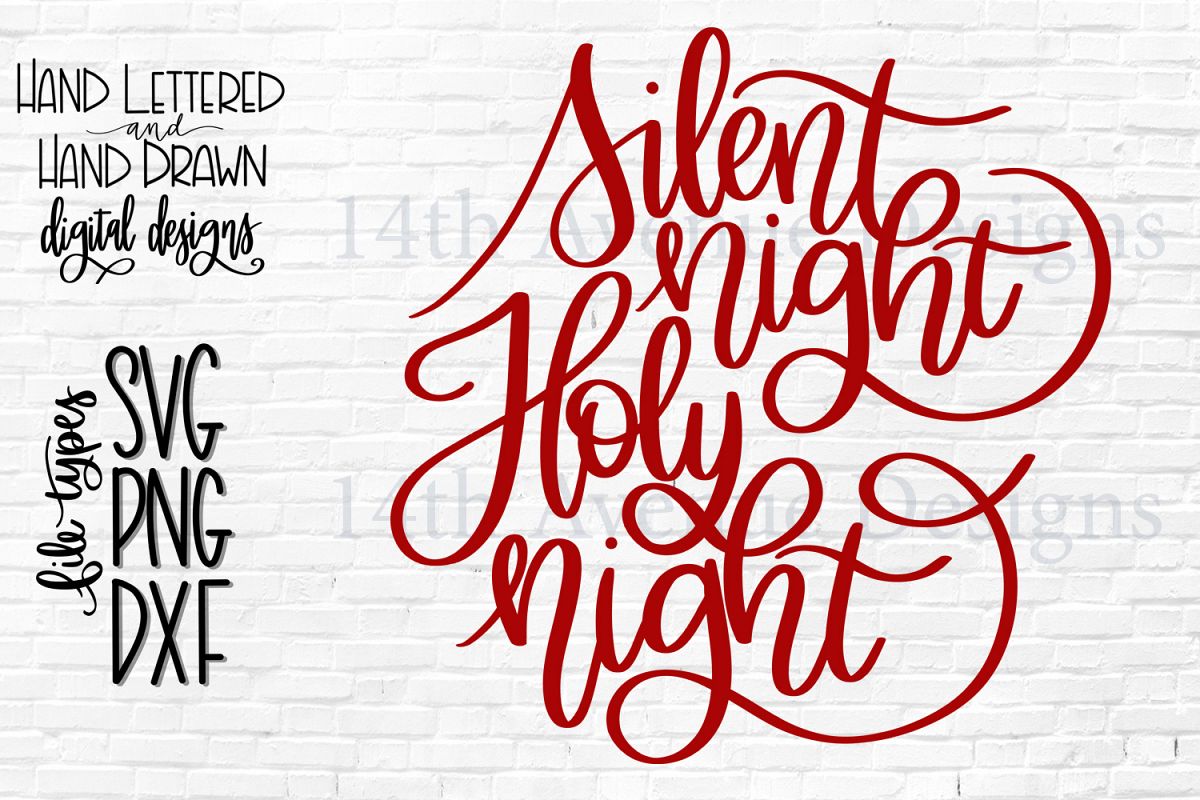 HAND LETTERED
and
HAND DRAWN
digital designs
file types
SVG
PNG
DXF
Silent
night
Holy
night
14th Avenue Designs
14th Avenue Designs